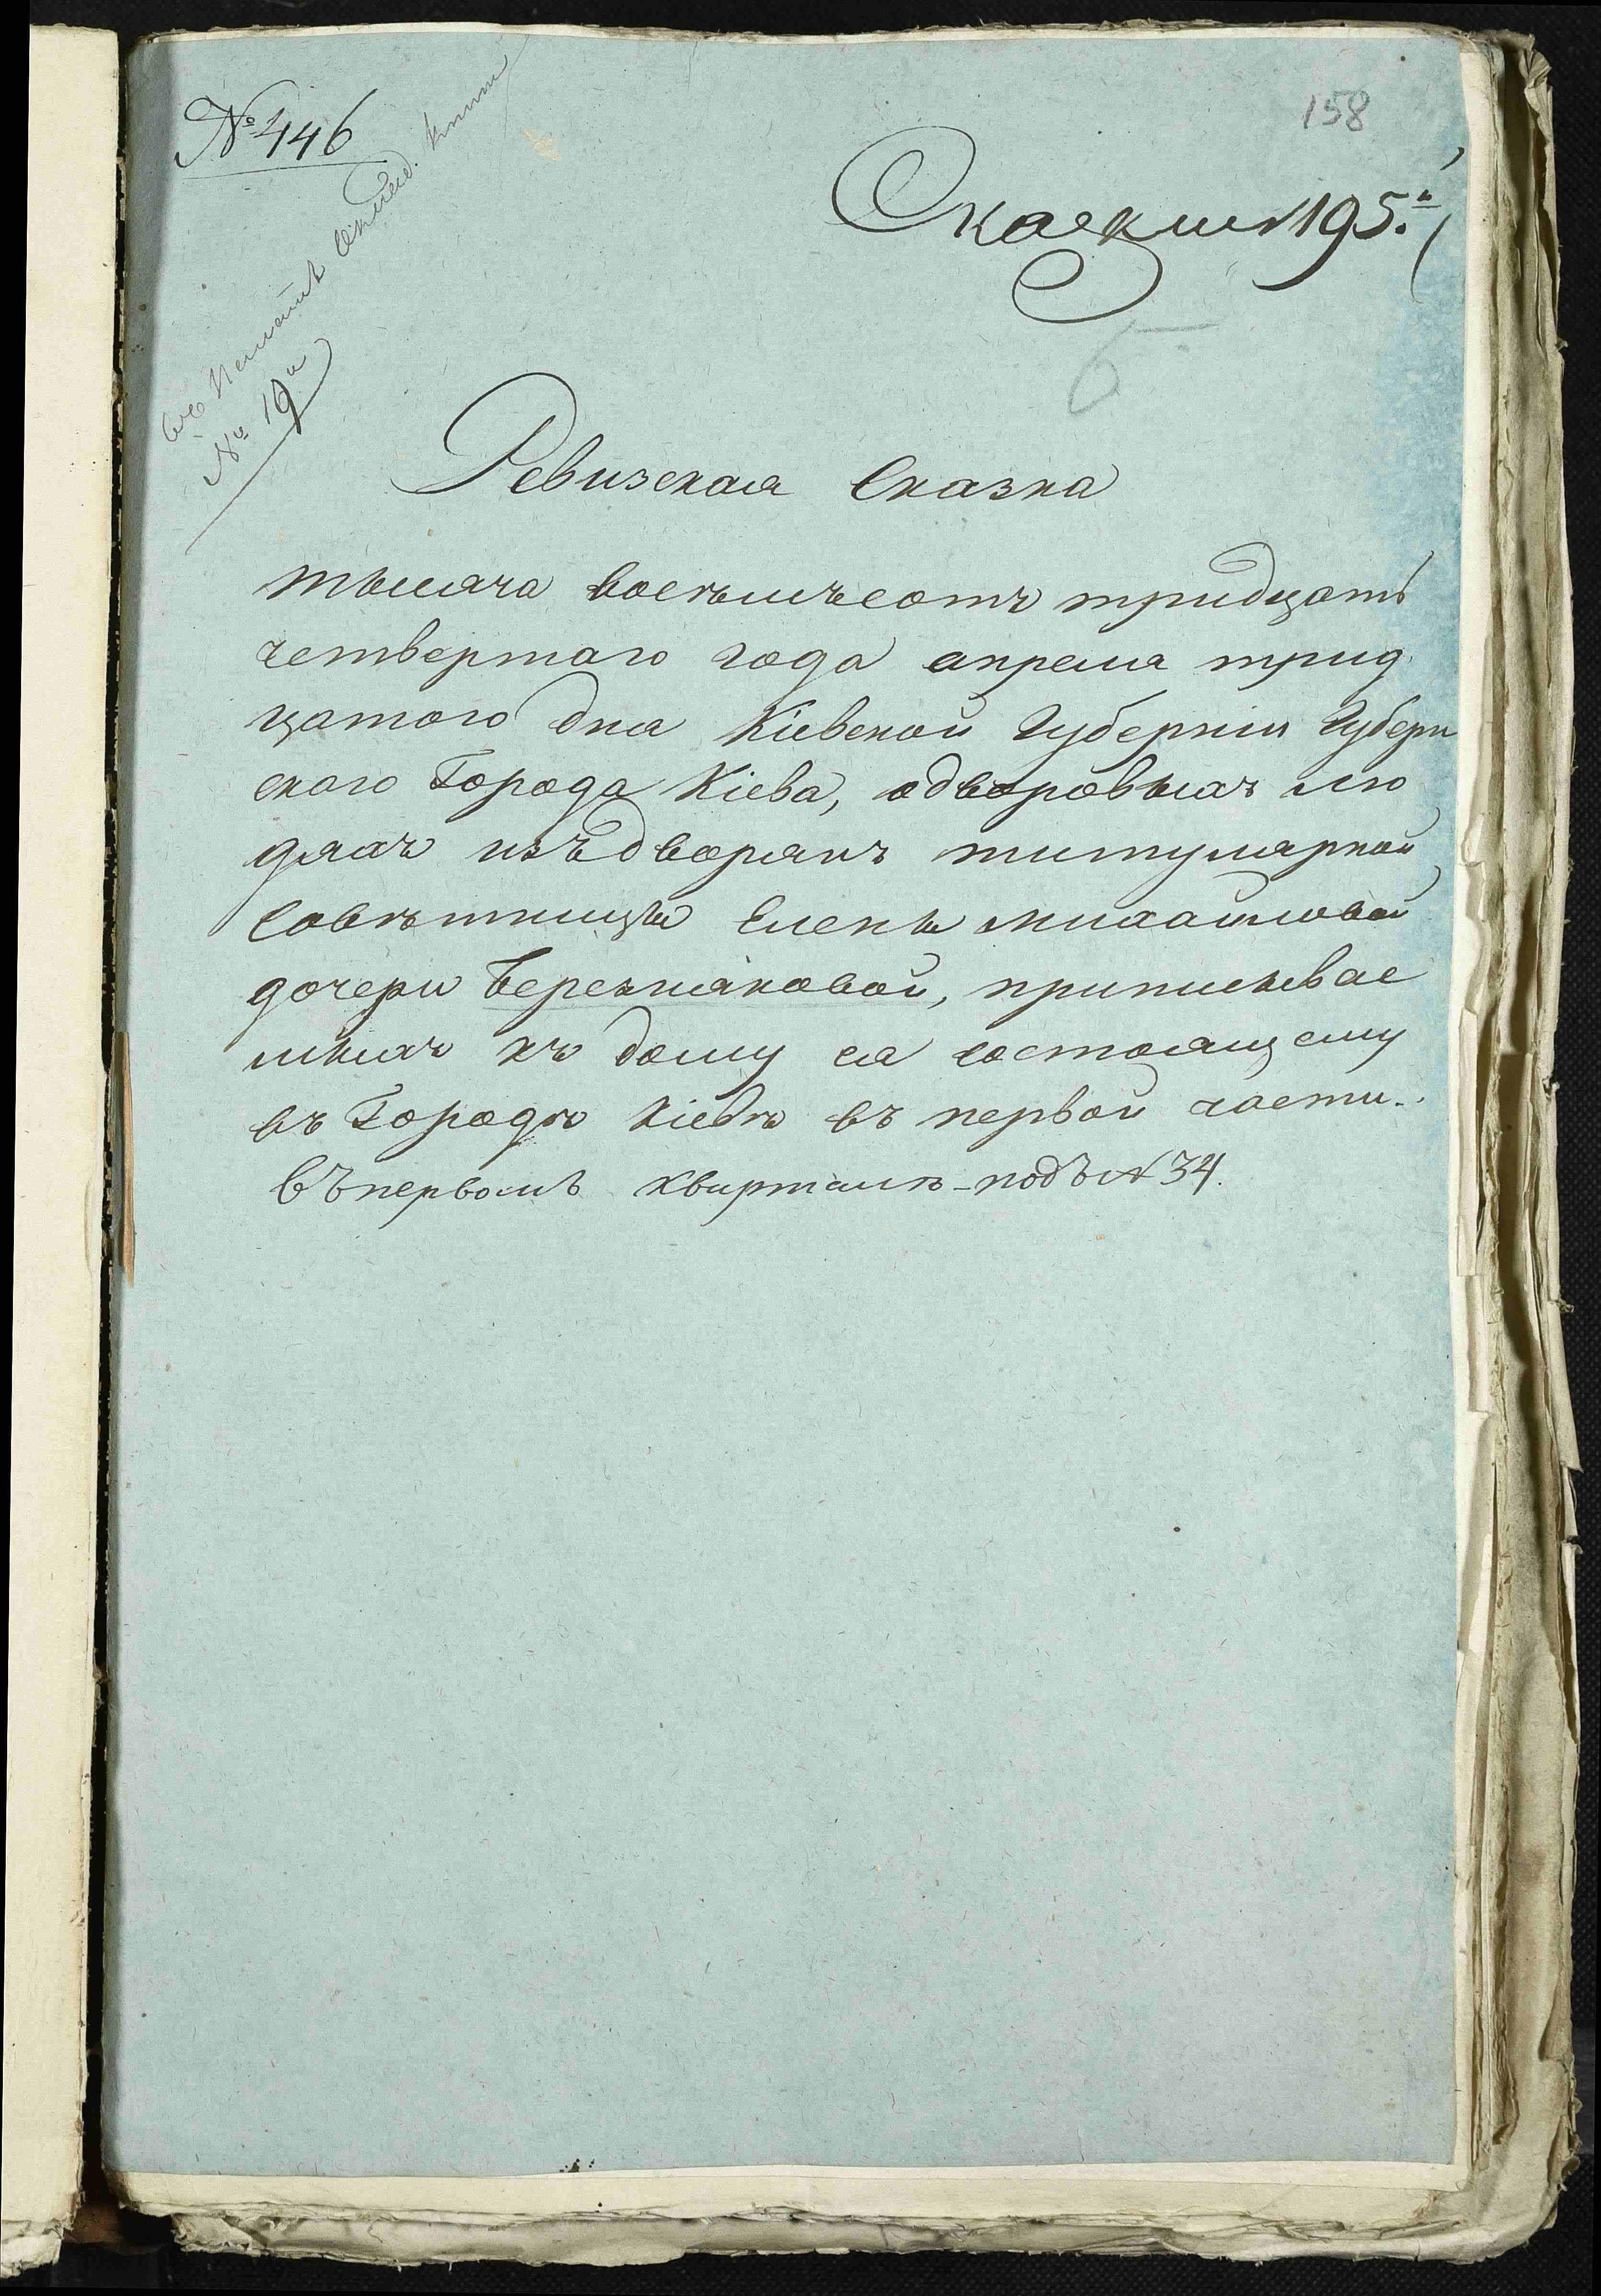 № 446
158
Сказки № 195.й
№ 19й
Ревизская Сказка
тысяча восѣмъсотъ тридцать
четвертаго года апреля трид
цатого дня Кіевской Губерніи Губерн
ского Города Кіева, одворовыхъ лю
дяхъ изъ дворянъ титулярной
Совѣтницы Елены михайловой
дочери Березняковой, приписывае
мыхъ къ дому ея состоящему
въ Городѣ Кіевѣ въ первой части
въ первомъ кварталѣ - подъ № 34.